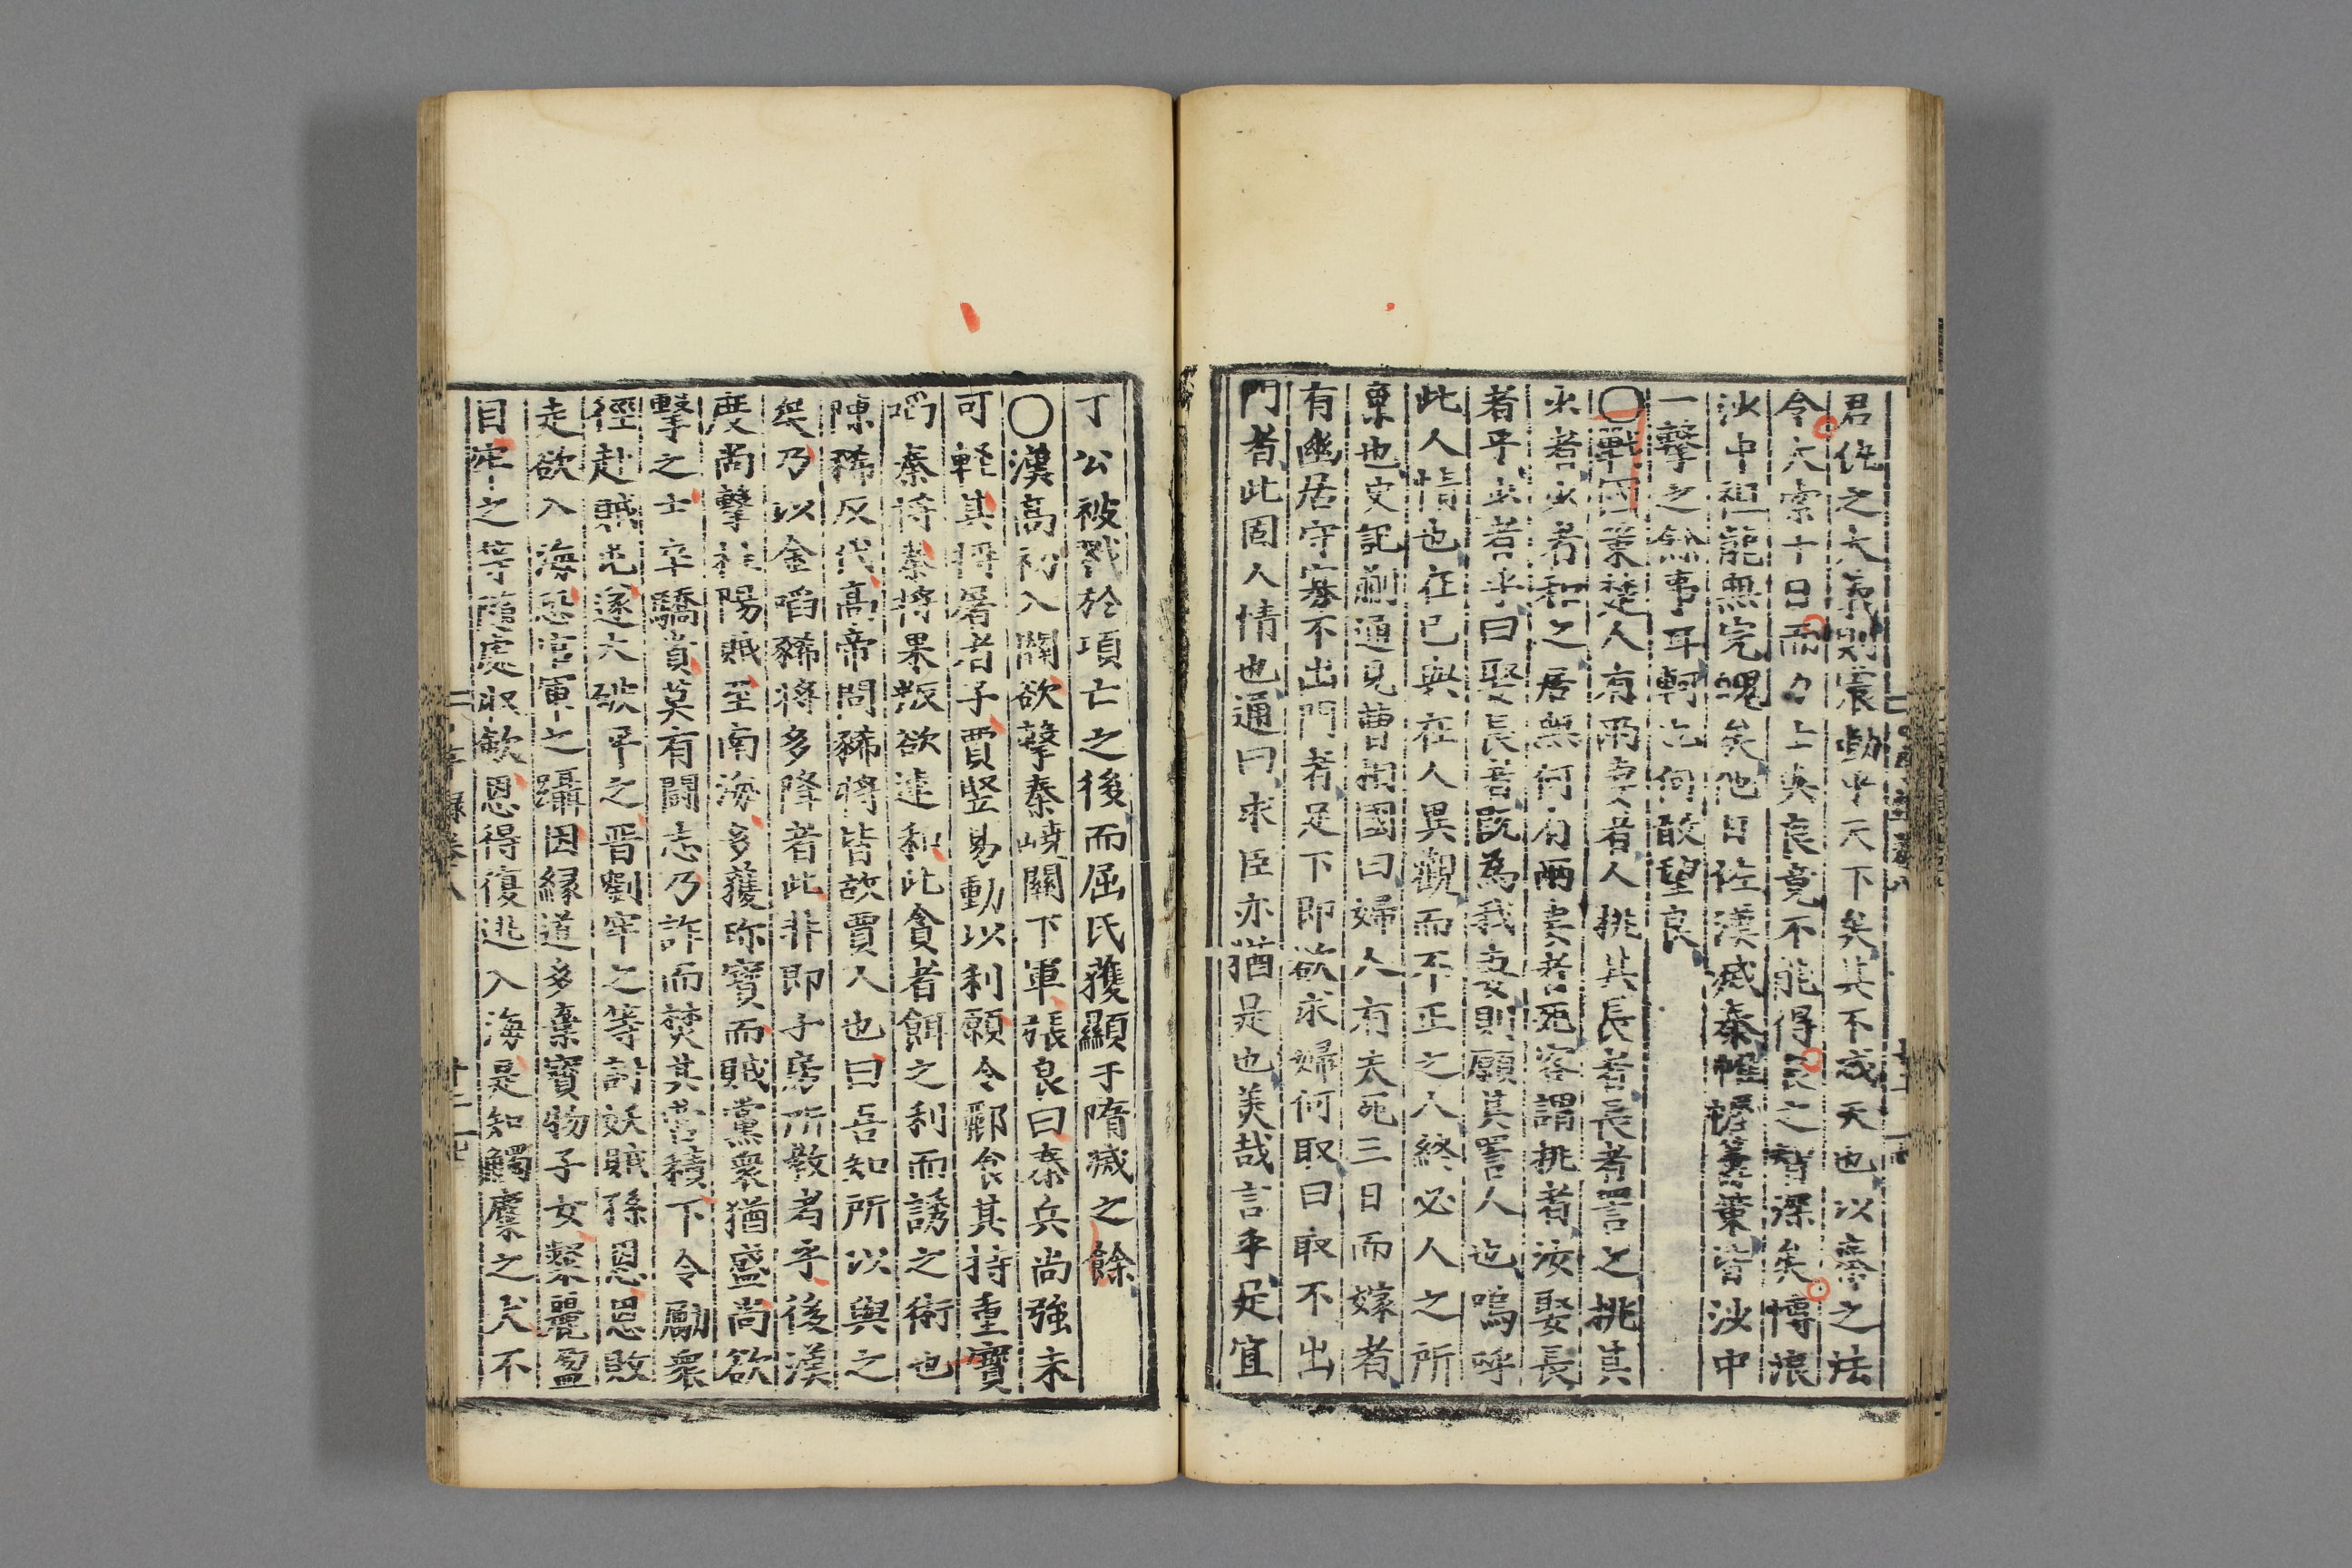 君臣之大義則震動乎天下矣其不惑天也以秦之法
令大索十日而力士與良竟不能得良之智深矣博浪
沙中祖龍無完魄矣他日佐漢滅秦帷幄籌策皆沙中
一擊之餘事耳軻也何敢望良
〇戰國策楚人有兩妻者人挑其長者長者詈之挑其
少者少者和之居無何有兩妻者死客謂挑者汝娶長
者乎少者乎曰娶長者既為我妻則願其詈人也嗚呼
此人情也在已與在人異觀而不正之人終必人之所
棄也史記蒯通見曹相國曰婦人有夫死三日而嫁者
有幽居守寡不出門者足下即欲求婦何取曰取不出
門者此固人情也通曰求臣亦猶是也美哉言乎是宜
丁公被戮於項亡之後而屈氏獲顯于隋滅之餘
〇漢高初入關欲擊秦嶢關下軍張良曰秦兵尚強未
可輕其將屠者子賈竪易動以利願令酈食其持重寶
啗秦將秦將果叛欲連和此貪者餌之利而誘之術也
陳豨反代高帝問豨將皆故賈人也曰吾知所以與之
矣乃以金啗豨將多降者此非即子房所教者乎後漢
度尚擊桂陽賊至南海多獲珎寶而賊黨衆猶盛尚欲
擊之士卒驕富莫有鬪志乃詐而焚其營積下令勵衆
徑赴賊屯遂大破平之晋劉牢之等討妖賊孫恩恩敗
走欲入海恐官軍之躡因縁道多棄寶物子女粲麗盈
目牢之等隨處収斂恩得復逃入海是知觸麋之犬不